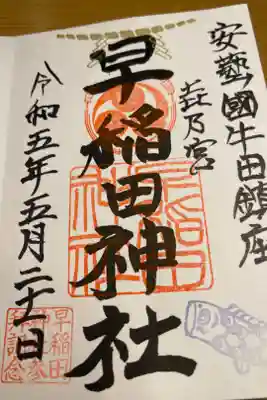 安藝國牛田鎮座
萩乃宮
早稲田神社
令和五年五月二十一日
早稲田神社